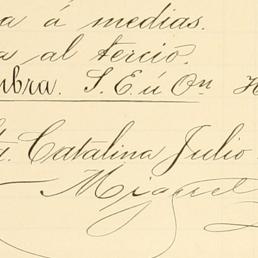 a á medias.
a al tercio.
mbra. S. E ú On
Catalina Julio
Miguel